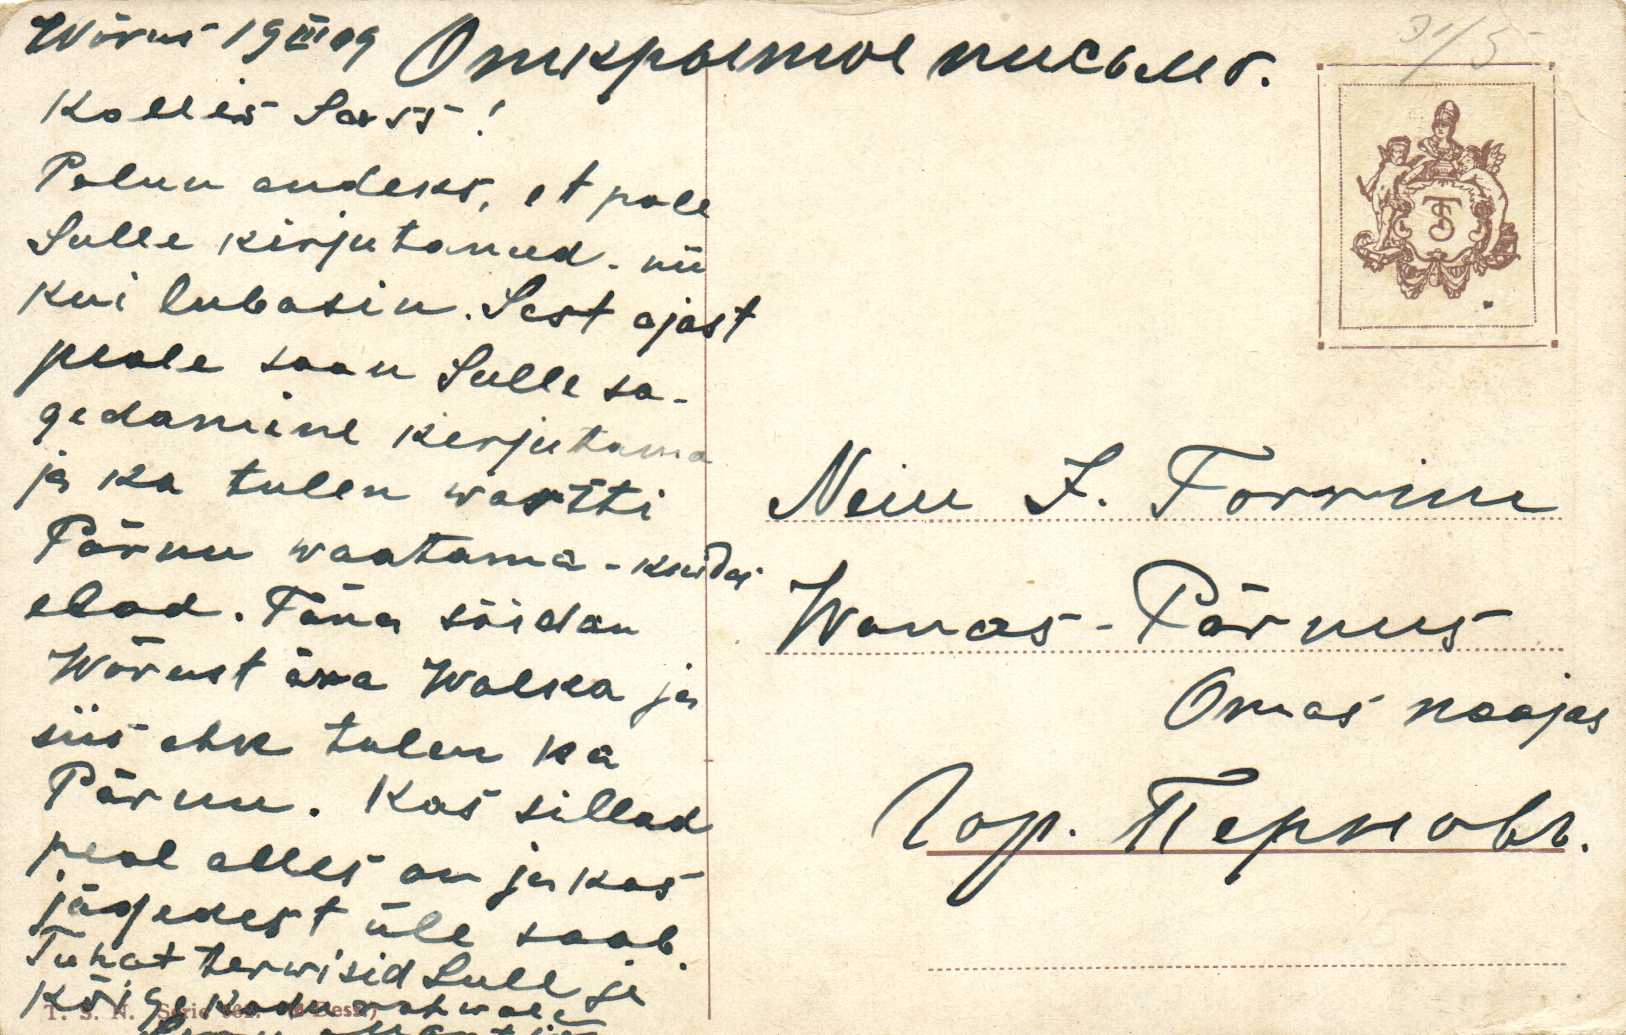 Wõrus 19 III 09
Открытое письмо.
Kallis Sass!
Palun andeks, et pole
Sulle kirjutanud. nii
kui lubasin. Sest ajast
peale saan Sulle sa-
gedamine kirjutama
ja ka tulen wartsti
Pärnu waatama - kuidas
elad. Täna sõidan
Wõrust ära Walka ja
siis ehk tulen ka
Pärnu. Kas sillad
peal alles on ja kas
jõgedest üle saab.
Tuhat terwisid Sulle ja
Kõige
T. S. N. Serie
Neiu
Wanas-Pärnus
Omas majas
Гор. Перновъ.
31/5
TS